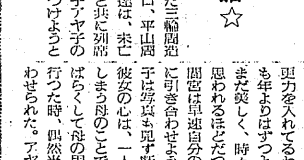 ☆
た三輪周造
日、平山周
達は、未亡
と共に列席
子・アヤ子の
つけようと
更力を入れて
も年よりはずつ
まだ美しく、時
思われるほどだつ
間宮は早速自分の
に引き合わせよ
子は写真も見ず断
彼女の心は、一人
しまう母のことで
ばらくして母の
行つた時、偶然
わせられた。アヤ